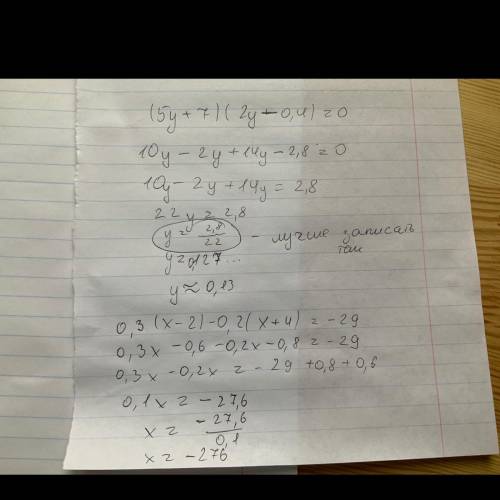 (5y+7)(2y-0,4)=0
10y-2y+14y-2,8=0
10y-2y+14y=2,8
22y=2,8
y=2,8/22 - лучше записать так
y=0,127...
y≈0,13
0,3(x-2)-0,2(x+4)=-29
0,3x-0,6-0,2x-0,8=-29
0,3x-0,2x=-29+0,8+0,6
0,1x=-27,6
x=-27,6/0,1
x=-276